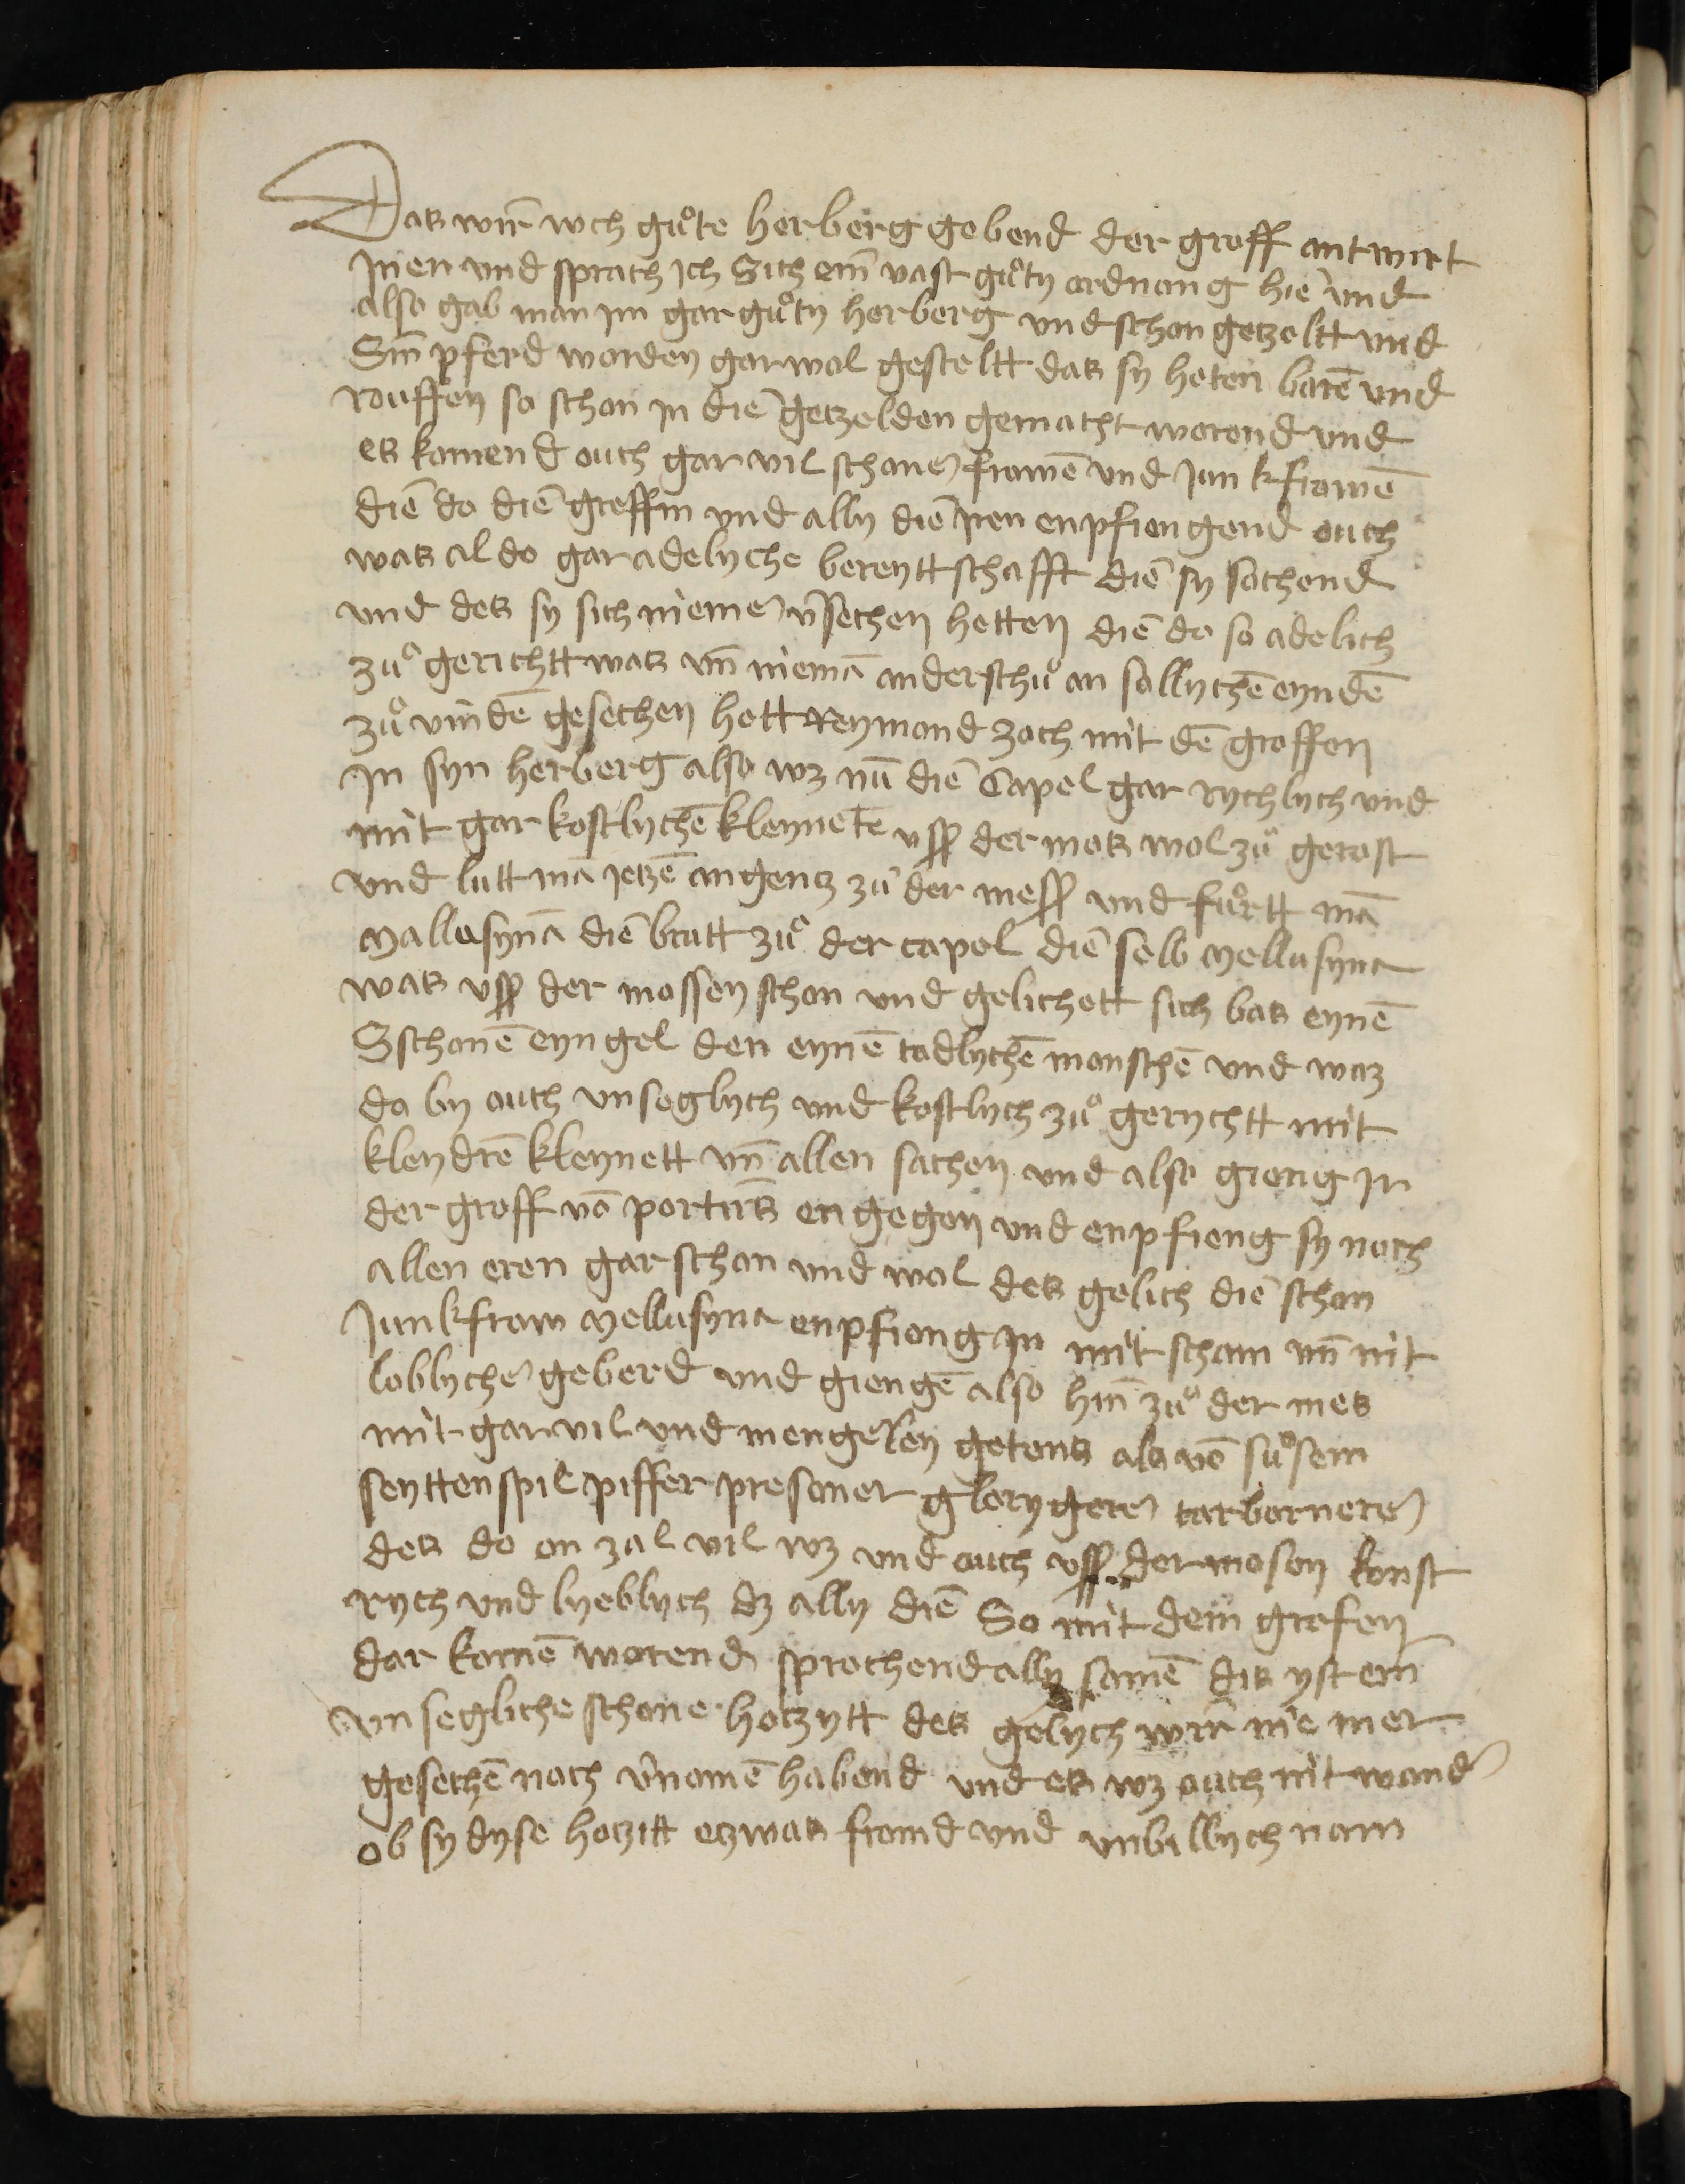 Das wir wch gůte herberg gebend der groff antwirt
Jnen und sprach ich Sich ein vast gůty ordnong hie und
also gab man im gar gůty herberg und schon getzeltt und
Sin pferd worden gar wol gesteltt das sy heten barē und
rouffen so schon in die getzelden gemacht worend und
es komend ouch gar vil schoner frowē und Junkfrowē
die do die greffin und ally die iren enpfiengend ouch
was al do gar adelyche bereyttschafft die sy sachend
und des sy sich niemer v̄sechen hetten die do so adelich
zů gerichtt was vn̄ niemā anderschů an sollychē eyndē
zů vindē gesechen hett Reymond zoch mit dē groffen
Jn syn herberg also wz nū die Capel gar rychlych und
mit gar kostlychē kleynetē uss der mos wol zů gerost
und lutt mā ietzē angentz zů der mess und fůrtt mā
Mallusynā die brutt zů der capel die selb Mellusyna
was uss der mossen schon und gelichett sich bas eynē
Schonē eyngel den eynē todlychē monschē und waz
do by ouch unseglych und kostlych zů gerychtt mit
kleydrē kleynett vn̄ allen sachen und also gieng ir
der groff vō portirs engegen und enpfieng sy noch
allen eren gar schon und wol des gelich die schon
Junkfrow Mellusyna enpfieng in mit scham vn̄ mit
loblycher geberd und giengē also hin zů der mes
mit gar vil und mengerley getons als vō sůsem
seyttenspil piffer presoner glorygerer tarbornerer
des do on zal vil wz und ouch uss der mosen konst
rych und lyeblych dz ally die So mit dem grofen
dar komē worend sprochend ally somē dis yst ein
un segliche schone hotzytt des gelych wir nie mer
gesechē noch v̄nomē habend und es wz ouch nit wonder
ob sy dyse hotzitt etzwas fromd und unbillych nam